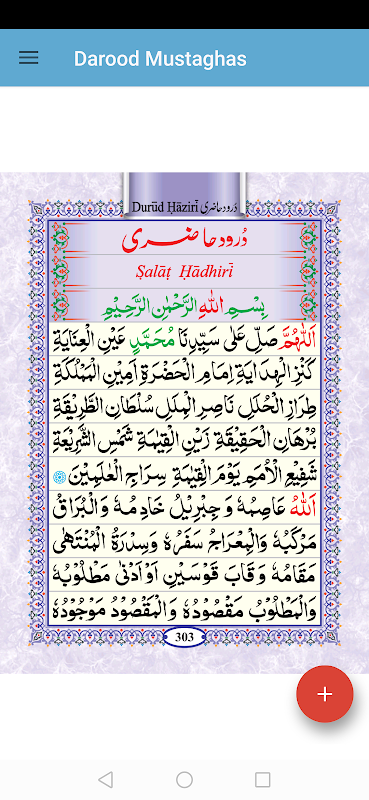 Darood Mustaghas
Durūd Ḥāzirī دُرود حاضری
دُرود حاضری
Ṣalāṭ Ḥādhirī
بِسْمِ اللهِ الرَّحْمٰنِ الرَّحِيْمِ
اَللّٰهُمَّ صَلِّ عَلٰى سَيِّدِنَا مُحَمَّدٍ عَيْنِ الْعِنَايَةِ
كَنْزِ الْهِدَايَةِ اِمَامِ الْحَضْرَةِ اَمِيْنِ الْمَمْلَكَةِ
طِرَازِ الْحُلَلِ نَاصِرِ الْمِلَلِ سُلْطَانِ الطَّرِيْقَةِ
بُرْهَانِ الْحَقِيْقَةِ زَيْنِ الْقِيٰمَةِ شَمْسِ الشَّرِيْعَةِ
شَفِيْعِ الْاُمَمِ يَوْمَ الْقِيٰمَةِ سِرَاجِ الْعٰلَمِيْنَ
اَللهُ عَاصِمُهٗ وَ جِبْرِيْلُ خَادِمُهٗ وَ الْبُرَاقُ
مَرْكَبُهٗ وَالْمِعْرَاجُ سَفَرُهٗ وَسِدْرَةُ الْمُنْتَهٰى
مَقَامُهٗ وَ قَابَ قَوْسَيْنِ اَوْ اَدْنٰى مَطْلُوْبُهٗ
وَالْمَطْلُوْبُ مَقْصُوْدُهٗ وَالْمَقْصُوْدُ مَوْجُوْدُهٗ
303